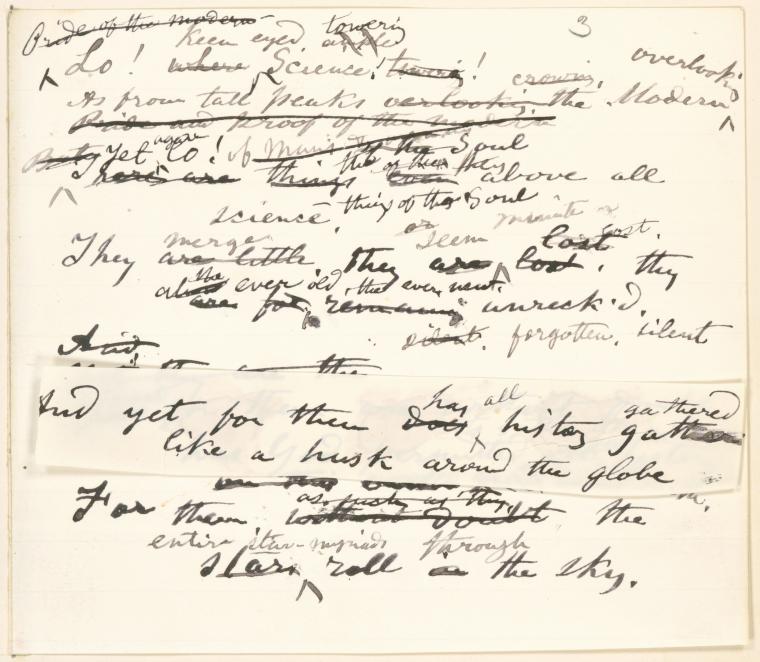 Pride of the modern 3
keen eyed towering
Lo! where Science! towering! overlooking
crowning,
As from tall peaks overlooking the Modern
Pride and proof of the modern
Yet again lo! of the Soul
There are things above all
science, things of the Soul
merge or seem minute or lost.
They are little, they are lost, they
the ever old, the ever new.
are for unreck'd,
silent, forgotten, silent
And
the
has all gathered
And yet for them does history gather
like a husk around the globe
as justly as they,
For them, without doubt the
entire star-myriads through
stars, roll in the sky.